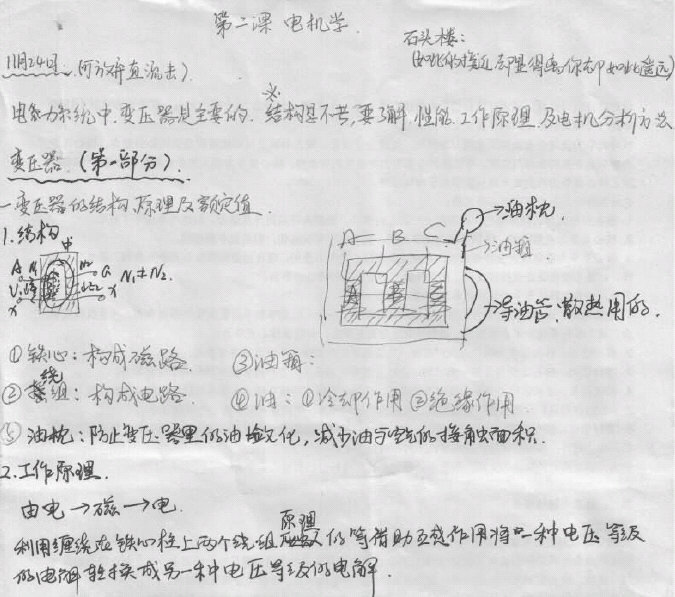 第二课 电机学.
石头楼:
11月24日. (可分析直流去).
(如此的接近 却显得离你却如此遥远)
电力系统中. 变压器是主要的. ※结构是不考, 要了解. 性能. 工作原理. 及电机分析方法
变压器. (第一部分).
一变压器的结构、原理及额定值.
1.结构
中
A B C
油枕.
油箱
导油管. 散热用的.
A N1 N2 a N1≠N2.
U1 U2
X x
①铁心: 构成磁路. ③油箱:
②绕组: 构成电路. ④油: ①冷却作用 ②绝缘作用
⑤ 油枕: 防止变压器里的油 化, 减少油与 的接触面积.
2.工作原理.
由电→磁→电.
原理
利用缠绕在铁心柱上两个绕组 借助互感作用将一种电压等级
的电能转换成另一种电压等级的电能.